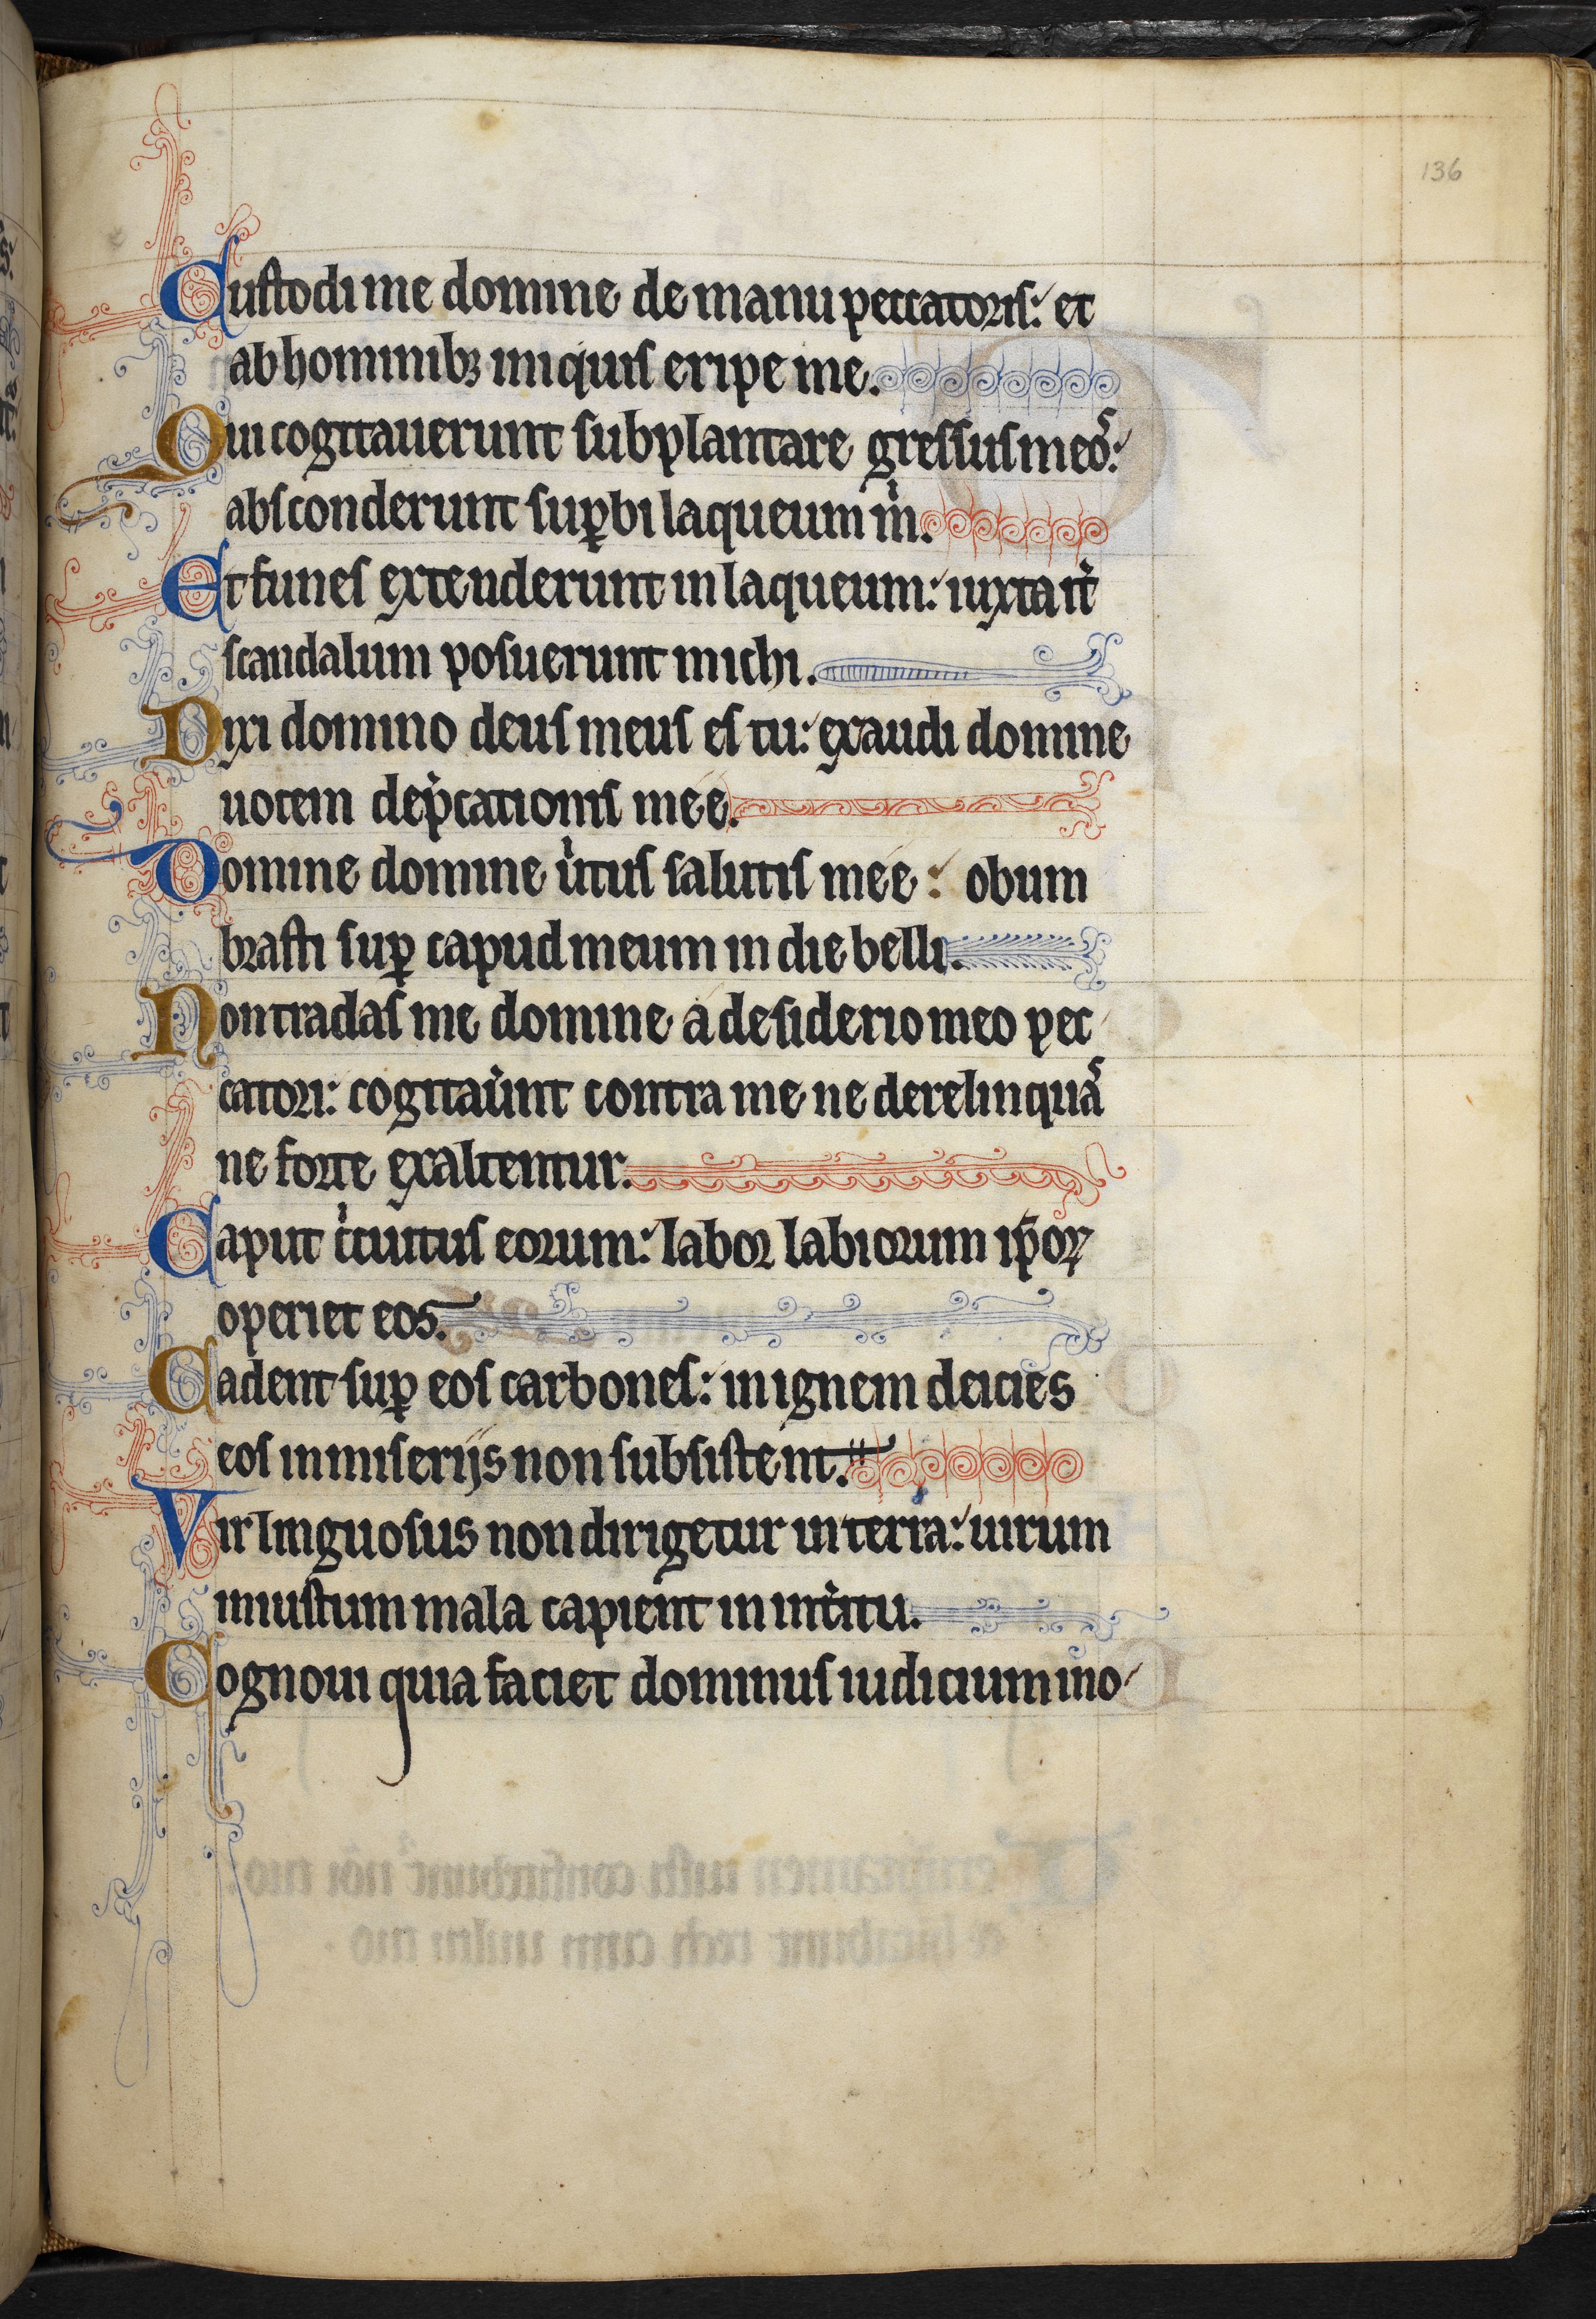 136
Custodi me domine de manu peccatoris: et
ab hominibꝫ iniquis eripe me.
Qui cogitauerunt subplantare gressus meoˢ:
absconderunt sup̲bi laqueum m̍.
Et funes extenderunt in laqueum: iuxta it̍
scandalum posuerunt michi.
Dixi domino deus meus es tu: exaudi domine
uocem dep̍cationis meé.
Domine domine u̍tus salutis meé: obum
brasti sup̲ capud meum in die belli.
Non tradas me domine a desiderio meo pec
catori: cogitau̍nt contra me ne derelinquaˢ
ne forte exaltentur.
Caput c̍cuitus eorum: labor labiorum ip̄oꝝ
operiet eos.
Cadent sup̲ eos carbones: in ignem deicies
eos in miserijs non subsistent.
Vir linguosus non dirigetur in terra: uirum
iniustum mala capient in int̍itu.
Cognoui quia faciet dominus iudicium ino